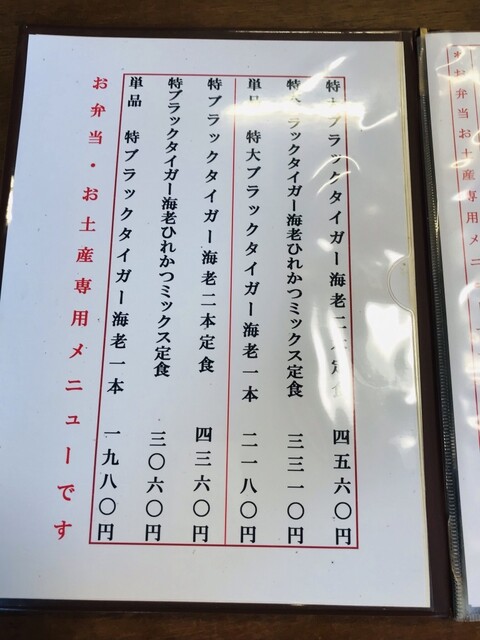 特大ブラックタイガー海老二本定食 四五六〇円
特大ブラックタイガー海老ひれかつミックス定食 三三一〇円
単品 特大ブラックタイガー海老一本 二一八〇円
特ブラックタイガー海老二本定食 四三六〇円
特ブラックタイガー海老ひれかつミックス定食 三〇六〇円
単品 特ブラックタイガー海老一本 一九八〇円
お弁当・お土産専用メニューです